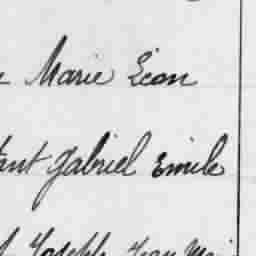 Marie Léon
Gabriel Emile
Joseph Jean